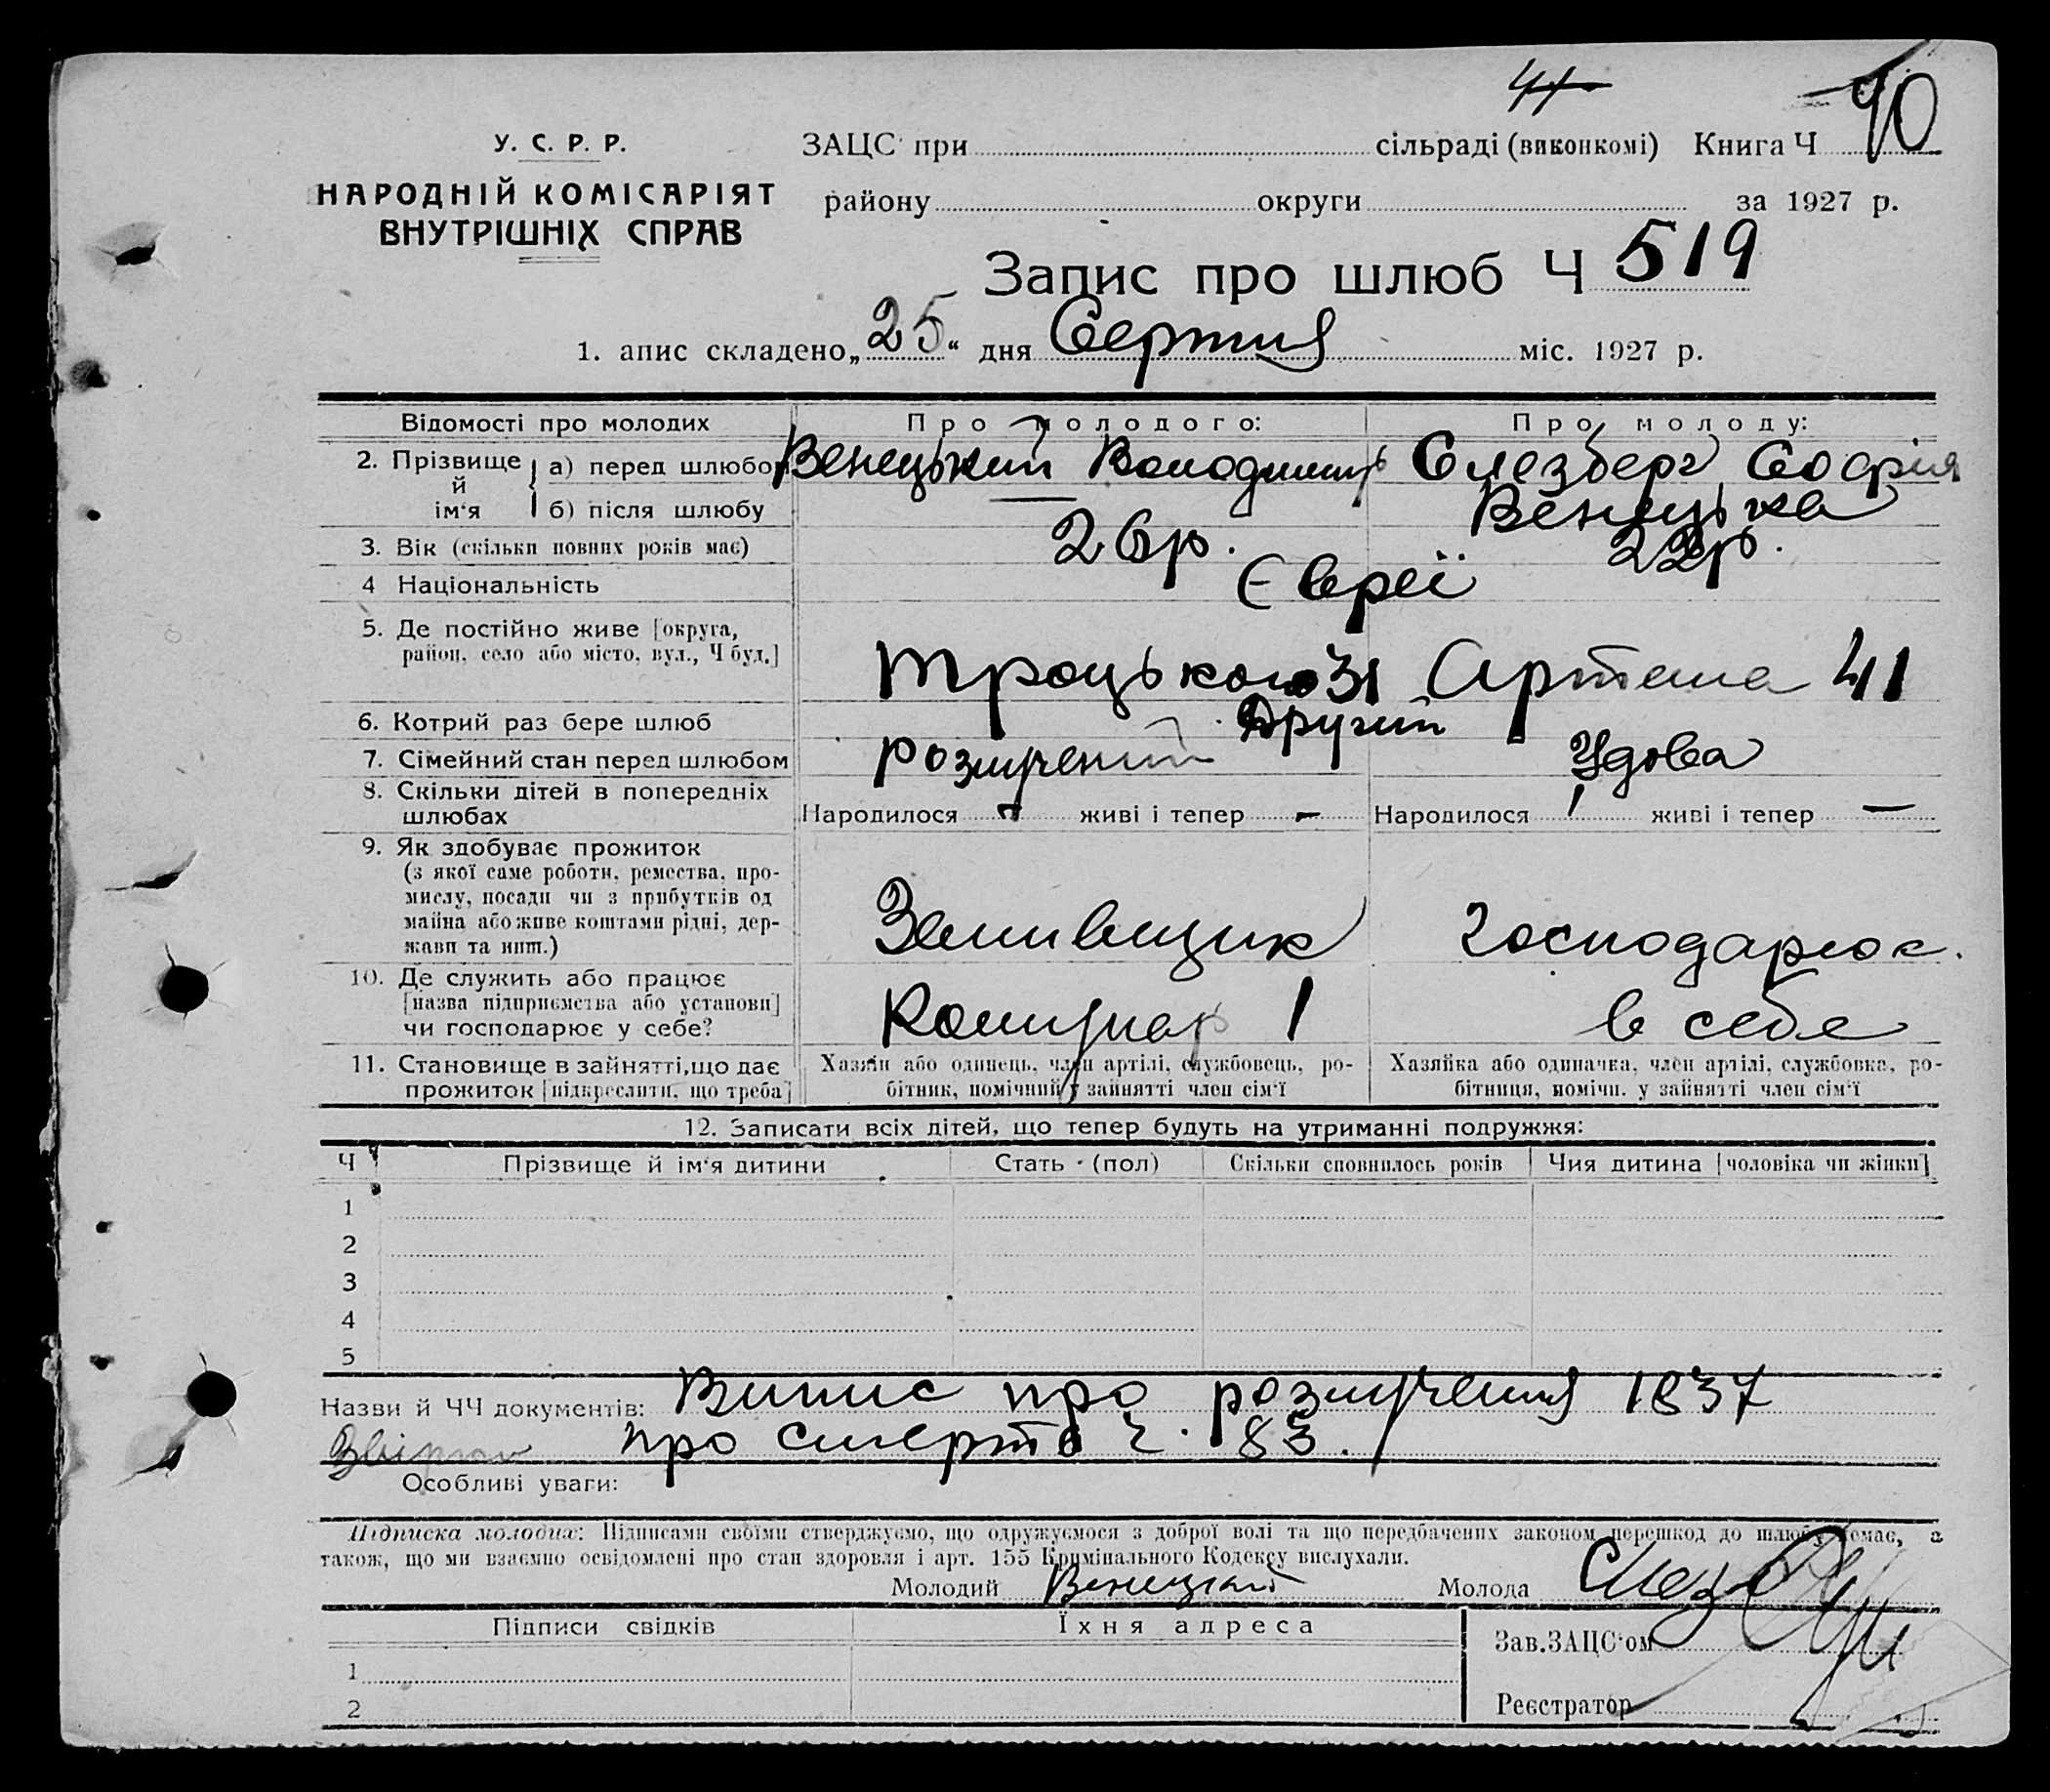 44
У. С. Р. Р.
НАРОДНІЙ КОМІСАРІЯТ
ВНУТРІШНІХ СПРАВ
ЗАЦС при сільраді (виконкомі) Книга Ч 90
району округи за 1927 р.
Запис про шлюб Ч 519
1. апис складено „25“ дня Серпня міс. 1927 р.
Відомості про молодих Про молодого: Про молоду:
2. Прізвище й ім'я а) перед шлюбом Венецький Володимир Слезберг Софія
б) після шлюбу — Венецька
3. Вік (скільки повних років має) 26 р. 22 р.
4 Національність Євреї
5. Де постійно живе [округа,
район, село або місто, вул., Ч буд.] Троцького 31 Артема 41
6. Котрий раз бере шлюб Другий
7. Сімейний стан перед шлюбом розлучений Удова
8. Скільки дітей в попередніх
шлюбах Народилося - живі і тепер - Народилося 1 живі і тепер —
9. Як здобуває прожиток
(з якої саме роботи, ремества, про-
мислу, посади чи з прибутків од
майна або живе коштами рідні, дер-
жави та инш.) господарює.
10. Де служить або працює
[назва підприємства або установи]
чи господарює у себе? Комунар 1 в себе
11. Становище в зайнятті, що дає Хазяїн або одинець, член артілі, службовець, ро- Хазяйка або одиначка, член артілі, службовка, ро-
прожиток [підкреслити, що треба] бітник, помічний у зайнятті член сім'ї бітниця, помічн. у зайнятті член сім'ї
12. Записати всіх дітей, що тепер будуть на утриманні подружжя:
Ч Прізвище й ім'я дитини Стать (пол) Скільки сповнилось років Чия дитина [чоловіка чи жінки]
1
2
3
4
5
Назви й ЧЧ документів: Випис про розлучення 1837
про смерть ч. 83.
Особливі уваги:
Підписка молодих: Підписами своїми стверджуємо, що одружуємося з доброї волі та що передбачених законом перешкод до шлюбу немає, а
також, що ми взаємно освідомлені про стан здоровля і арт. 155 Кримінального Кодексу вислухали.
Молодий Венецкий Молода
Підписи свідків Їхня адреса
Зав. ЗАЦС'ом
1
Реєстратор
2